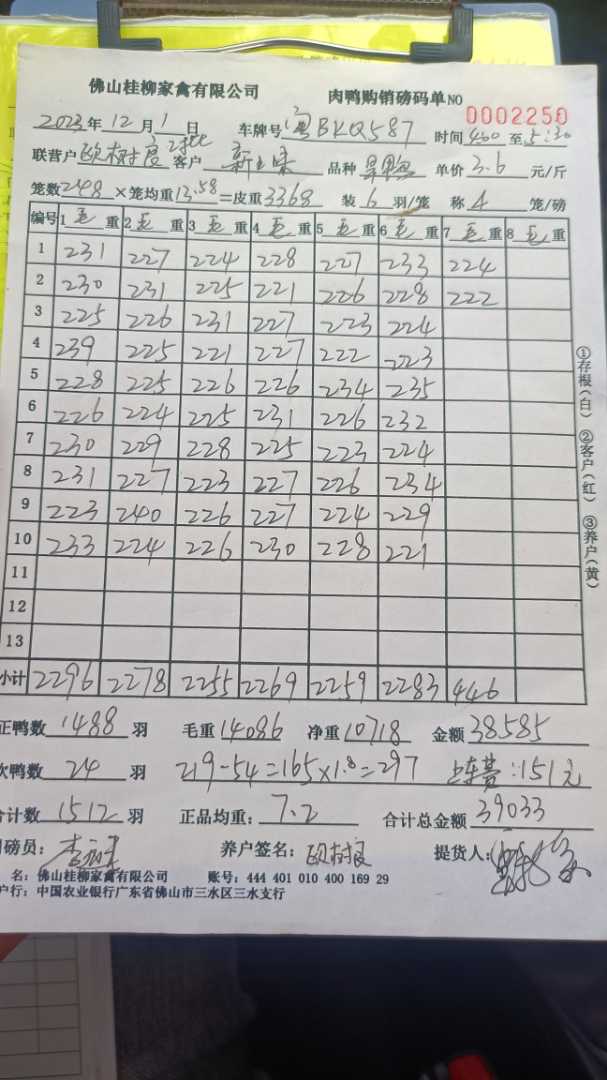 佛山桂柳家禽有限公司 肉鸭购销磅码单NO 0002250
2023年12月1日 车牌号 粤BKQ587 时间 400 至 5:30
联营户 欧树 客户 新 品种 单价 3.6 元/斤
笼数 248 ×笼均重 13.58 =皮重 3368 装 6 羽/笼 称 4 笼/磅
编号 1 毛 重 2 毛 重 3 毛 重 4 毛 重 5 毛 重 6 毛 重 7 毛 重 8 毛 重
1 231 227 224 228 227 233 224
2 230 231 225 221 226 228 222
3 225 226 231 227 223 224
4 239 225 221 227 222 223
5 228 225 226 226 234 235
6 226 224 225 231 226 232
7 230 229 228 225 223 224
8 231 227 223 227 226 234
9 223 240 226 227 224 229
10 233 224 226 230 228 221
11
12
13
小计 2296 2278 2255 2269 2259 2283 446
正鸭数 1488 羽 毛重 14086 净重 10718 金额 38585
次鸭数 24 羽 219-54=165×1.8=297 上车费:151元
合计数 1512 羽 正品均重: 7.2 合计总金额 39033
司磅员: 养户签名: 欧树良 提货人:
名: 佛山桂柳家禽有限公司 账号: 444 401 010 400 169 29
户行: 中国农业银行广东省佛山市三水区三水支行
①存根(白) ②客户(红) ③养户(黄)